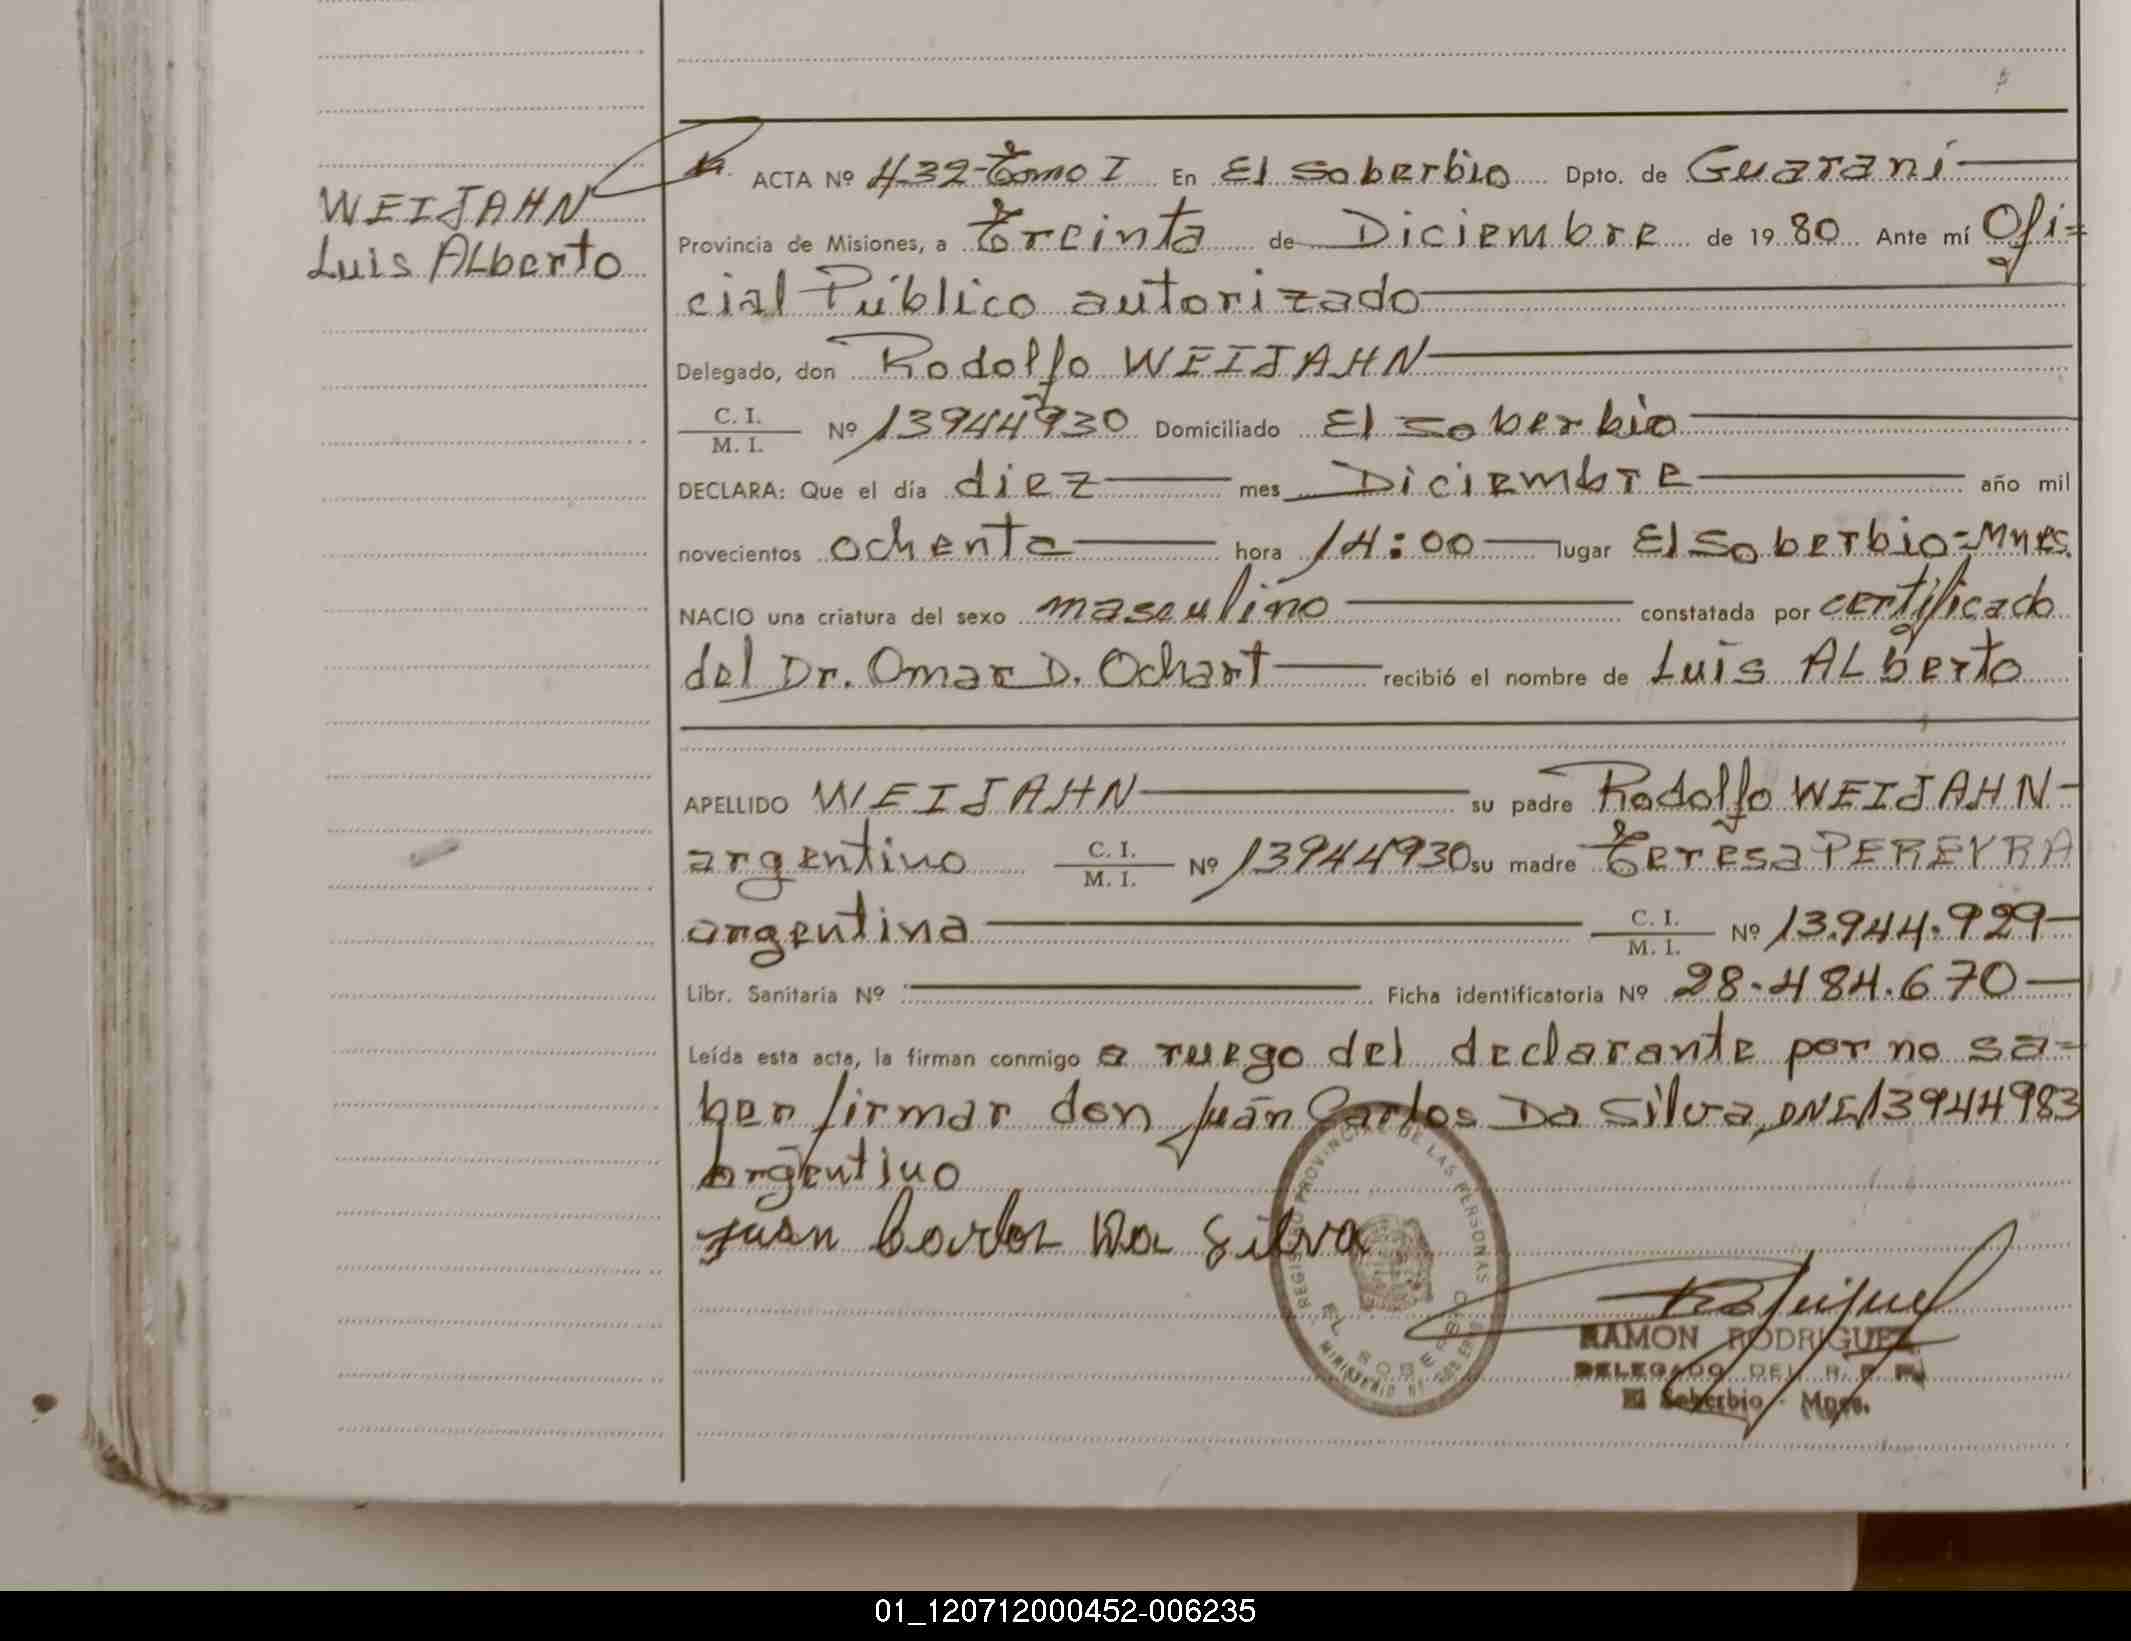 WEIJAHN
Luis ALberto
ACTA Nº 432-Tomo I En El Soberbio Dpto. de Guaraní
Provincia de Misiones, a Treinta de Diciembre de 1980 Ante mí Ofi=
cial Público autorizado
Delegado, don Rodolfo WEIJAHN
C. I.
M. I. Nº 13944930 Domiciliado El Soberbio
DECLARA: Que el día diez mes Diciembre año mil
novecientos ochenta hora 14:00 lugar El Soberbio=Mnes.
NACIO una criatura del sexo masculino constatada por certificado
del Dr. Omar D. Ochart recibió el nombre de Luis ALberto
APELLIDO WEIJAHN su padre Rodolfo WEIJAHN
argentino C. I. M. I. Nº 13944930 su madre Teresa PEREYRA
argentina C. I. M. I. Nº 13.944.929
Libr. Sanitaria Nº Ficha identificatoria Nº 28.484.670
Leída esta acta, la firman conmigo a ruego del declarante por no sa=
ber firmar don Juán Carlos Da Silva, DNI, 13944983
argentino
Juan Carlos Da Silva
REGISTRO PROVINCIAL DE LAS PERSONAS
EL SOBERBIO
MINISTERIO DE
RAMON RODRIGUEZ
DELEGADO DEL R. P. P.
El Soberbio - Mnes.
01_120712000452-006235